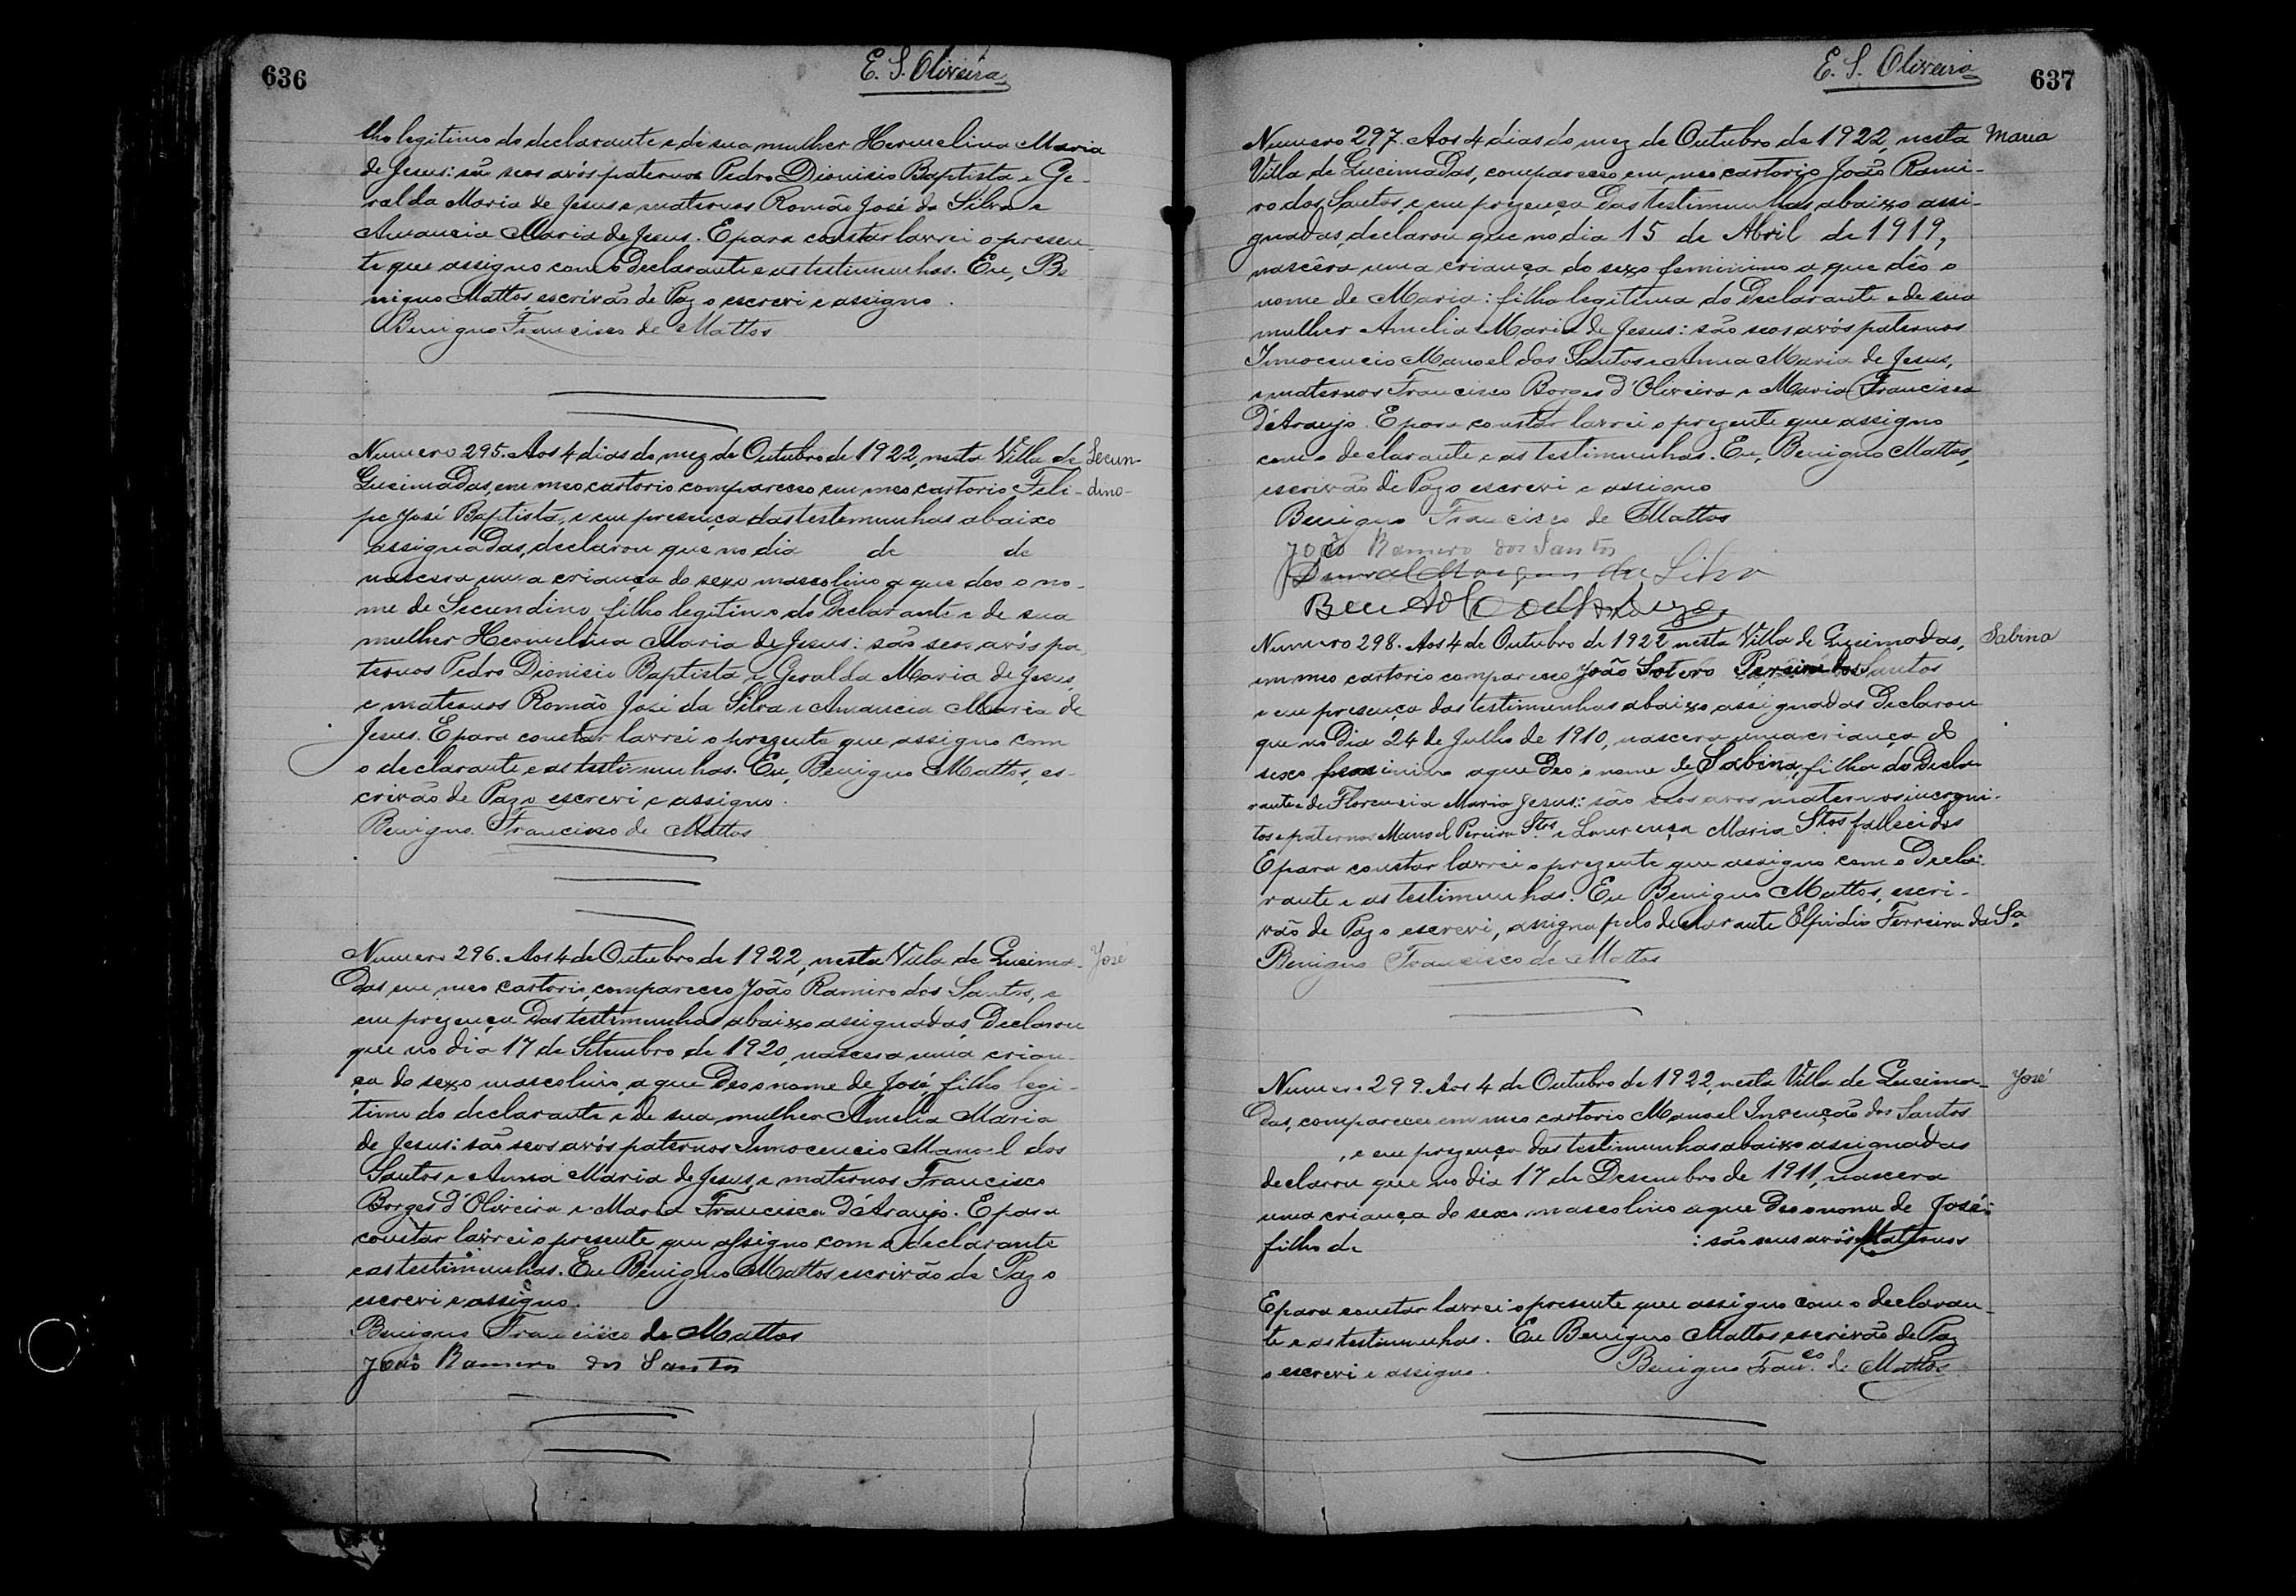 636
E. S. Oliveira
lho legitimo do declarante e de sua mulher Hermelina Maria
de Jesus: são seos avós paternos Pedro Dionisio Baptista e Ge-
ralda Maria de Jesus e maternos Romão José da Silva e
Amancia Maria de Jesus. E para constar lavrei o presen-
te que assigno com o declarante e as testimunhas. Eu, Be
nigno Mattos, escrivão de Paz o escrevi e assigno.
Benigno Francisco de Mattos
Numero 295. Aos 4 dias do mez de Outubro de 1922, nesta Villa de
Secun-
Queimadas, em meo cartorio compareceo em meo cartorio Feli-
dino-
pe José Baptista, e em presença das testemunhas abaixo
assignadas, declarou que no dia de de
nascera uma criança do sexo mascolino a que deo o no-
me de Secundino filho legitimo do Declarante e de sua
mulher Hermelina Maria de Jesus: são seos avós pa
ternos Pedro Dionisio Baptista e Geralda Maria de Jesus,
e maternos Romão José da Silva e Amancia Maria de
Jesus. E para constar lavrei o prezente que assigno com
o declarante e as testimunhas. Eu, Benigno Mattos, es-
crivão de Paz o escrevi e assigno.
Benigno Francisco de Mattos
Numero 296. Aos 4 de Outubro de 1922, nesta Villa de Queima-
José
das em meo cartorio, compareceo João Ramiro dos Santos, e
em prezença das testimunhas abaixo assignadas, Declarou
que no dia 17 de Setembro de 1920, nascera uma crian-
ça do sexo mascolino, a que Deo o nome de José, filho legi-
timo do declarante e de sua mulher Amelia Maria
de Jesus: são seos avós paternos Innocencio Manoel dos
Santos e Anna Maria de Jesus, e maternos Francisco
Borges d'Oliveira e Maria Francisca d'Araujo. E para
constar lavrei o presente que assigno com o declarante
e as testimunhas. Eu Benigno Mattos escrivão de Paz o
escrevi e assigno.
Benigno Francisco de Mattos
João Ramiro dos Santos
E. S. Oliveira
637
Numero 297. Aos 4 dias do mez de Outubro de 1922, nesta
Maria
Villa de Queimadas, compareceo em meo cartorio João Rami-
ro dos Santos, e em prezença das testimunhas abaixo assi-
gnadas, declarou que no dia 15 de Abril de 1919,
nascêra uma criança do sexo feminimo a que dêo o
nome de Maria: filha legitima do Declarante e de sua
mulher Amelia Maria de Jesus: são seos avós paternos
Innocencio Manoel dos Santos e Anna Maria de Jesus,
e maternos Francisco Borges d'Oliveira e Maria Francisca
d'Araujo. E para constar lavrei o prezente que assigno
com o declarante e as testimunhas. Eu, Benigno Mattos,
escrivão de Paz o escrevi e assigno
Benigno Francisco de Mattos
João Ramero dos Santos
da Silva
Numero 298. Aos 4 de Outubro de 1922 nesta Villa de Queimadas,
Sabina
em meo cartorio compareceo João Sotero Pereira dos Santos
e em presença das testimunhas abaixo assignadas Declarou
que no Dia 24 de Julho de 1910, nascera uma criança do
sexo feminimo a que Deo o nome de Sabina, filha do Decla-
rante e de Florencia Maria Jesus: são seos avos maternos incogni-
tos e paternos Manoel Pereira Stos e Lourença Maria Stos fallecidos
E para constar lavrei o prezente que assigno com o Decla-
rante e as testimunhas. Eu Benigno Mattos, escri-
vão de Paz o escrevi, assigna pelo declarante Elpidio Ferreira da Sa.
Benigno Francisco de Mattos
Numero 299. Aos 4 de Outubro de 1922, nesta Villa de Queima-
José
das, compareceu em meo cartorio Manoel Invenção dos Santos
, e em prezença das testimunhas abaixo assignadas
declarou que no dia 17 de Desembro de 1911, nascera
uma criança do sexo mascolino a que Deo o nome de José:
filho de : são seus avós Maternos
E para constar lavrei o presente que assigno com o declaran-
te e as testimunhas. Eu Benigno Mattos escrivão de Paz
o escrevi e assigno. Benigno Franco. de Mattos